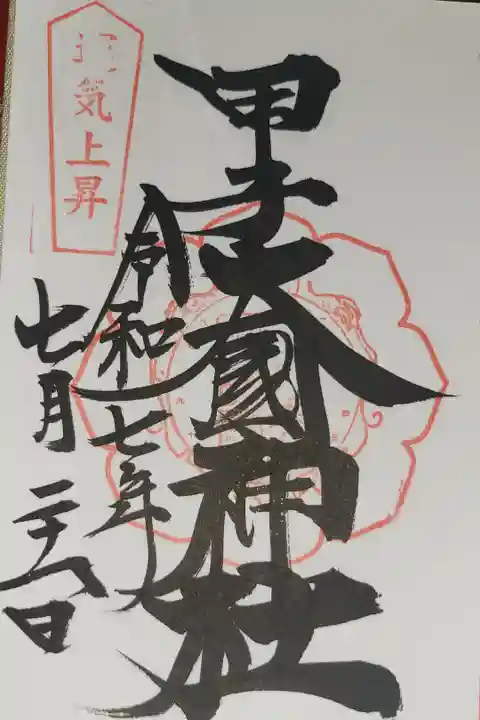 甲子大國神社
令和七年
七月二十八日
運気上昇